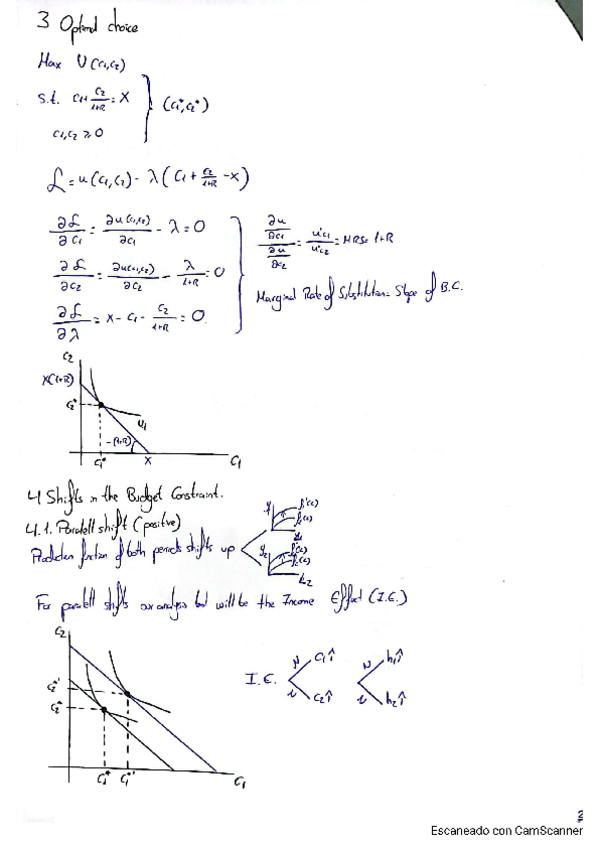 3 Optimal choice
Max U(c1,c2)
s.t. c1+ c2/1+R = X } (c1*,c2*)
c1,c2 ≥ 0
ℒ = u(c1,c2) - λ(c1 + c2/1+R - x)
∂ℒ/∂c1 = ∂u(c1,c2)/∂c1 - λ = 0
∂ℒ/∂c2 = ∂u(c1,c2)/∂c2 - λ/1+R = 0
∂ℒ/∂λ = x - c1 - c2/1+R = 0.
∂u/∂c1 / ∂u/∂c2 = u'c1/u'c2 = MRS = 1+R
Marginal Rate of Substitution = Slope of B.C.
c2
x(1+R)
c2*
u1
-(1+R)
c1*
x
c1
4 Shifts in the Budget Constraint.
4.1. Paralell shift (positive)
Production function of both periods shifts up
y1
f'(l)
f(l)
l1
y2
f'(l)
f(l)
l2
For paralell shifts our analysis but will be the Income Effect (I.E.)
c2
c2*'
c2*
c1*
c1*'
c1
I.E.
N c1↑
c2↑
N h1↑
h2↑
2
Escaneado con CamScanner